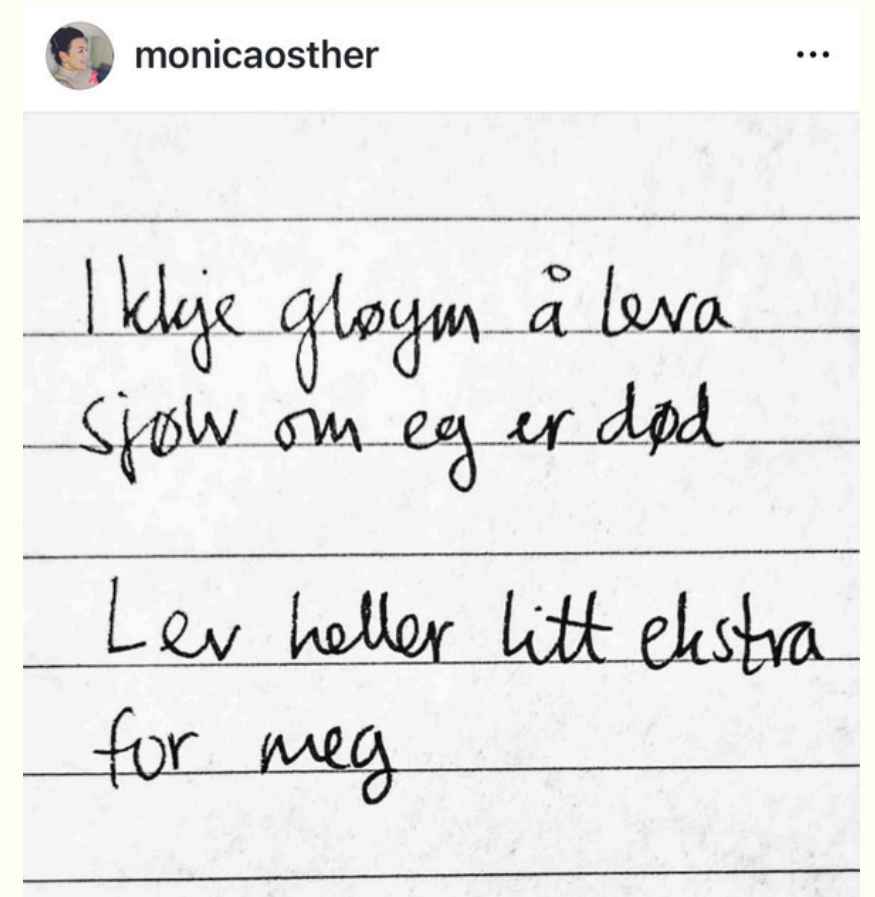 monicaosther
Ikkje gløym å leva
sjølv om eg er død
Lev heller litt ekstra
for meg